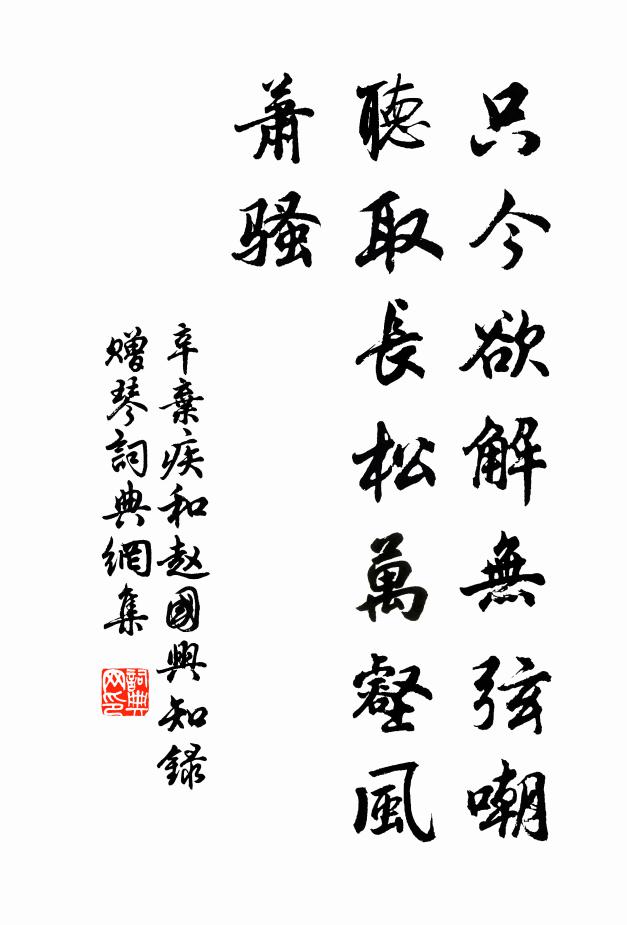 只今欲解無弦嘲
聽取長松萬壑風
蕭騷
辛棄疾和赵國興知録
赠琴詞典網集
詞典网印